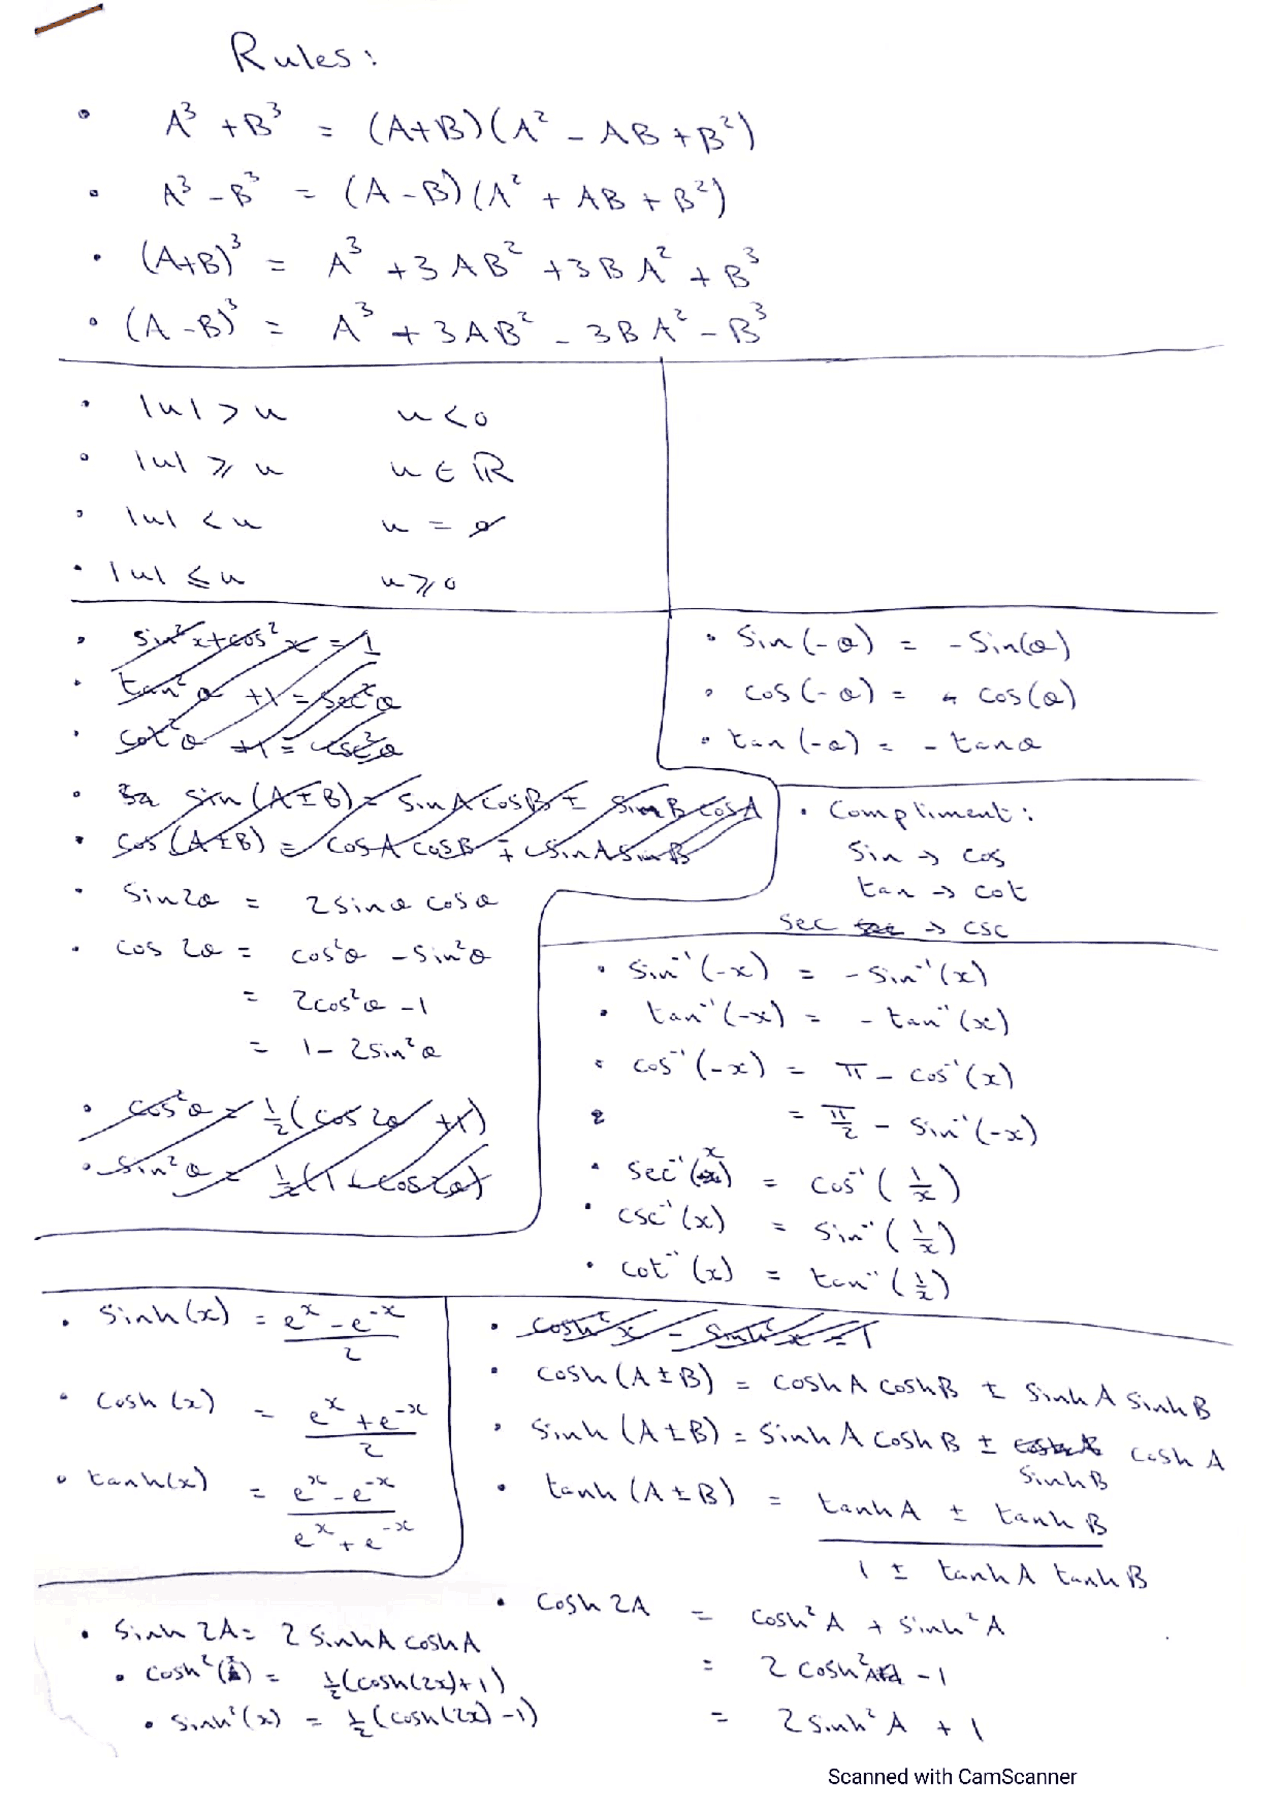 Rules:
• A³ + B³ = (A+B)(A² - AB + B²)
• A³ - B³ = (A-B)(A² + AB + B²)
• (A+B)³ = A³ + 3AB² + 3BA² + B³
• (A-B)³ = A³ + 3AB² - 3BA² - B³
• |u| > u u < 0
• |u| ⩾ u u ∈ ℝ
• |u| < u u = ∅
• |u| ⩽ u u ⩾ 0
• sin²x + cos²x = 1
• tan²θ + 1 = sec²θ
• cot²θ + 1 = csc²θ
• sin(A±B) = sinA cosB ± sinB cosA
• cos(A±B) = cosA cosB ∓ sinA sinB
• sin2θ = 2sinθ cosθ
• cos 2θ = cos²θ - sin²θ
= 2cos²θ - 1
= 1 - 2sin²θ
• cos²θ = ½(cos 2θ + 1)
• sin²θ = ½(1 - cos2θ)
• Sin(-θ) = -Sin(θ)
• cos(-θ) = cos(θ)
• tan(-θ) = -tanθ
• Compliment:
Sin → cos
tan → cot
sec → csc
• sin⁻¹(-x) = -sin⁻¹(x)
• tan⁻¹(-x) = -tan⁻¹(x)
• cos⁻¹(-x) = π - cos⁻¹(x)
= π/2 - sin⁻¹(-x)
• sec⁻¹(x) = cos⁻¹(1/x)
• csc⁻¹(x) = sin⁻¹(1/x)
• cot⁻¹(x) = tan⁻¹(1/x)
• Sinh(x) = (eˣ - e⁻ˣ)/2
• Cosh(x) = (eˣ + e⁻ˣ)/2
• tanh(x) = (eˣ - e⁻ˣ)/(eˣ + e⁻ˣ)
• cosh²x - sinh²x = 1
• cosh(A±B) = coshA coshB ± sinhA sinhB
• sinh(A±B) = sinhA coshB ± coshA
sinhB
• tanh(A±B) = (tanhA ± tanhB)/(1 ± tanhA tanhB)
• Cosh 2A = cosh²A + sinh²A
= 2cosh²A - 1
= 2sinh²A + 1
• Sinh 2A = 2 sinhA coshA
• cosh²(x) = ½(cosh(2x)+1)
• sinh²(x) = ½(cosh(2x)-1)
Scanned with CamScanner